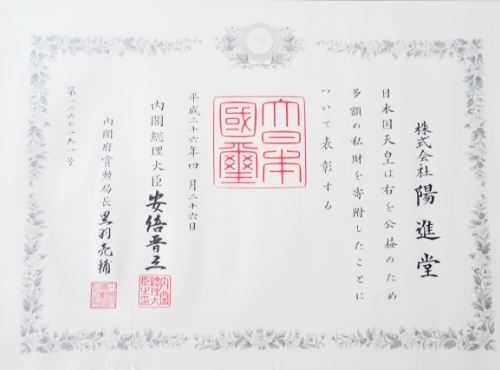 株式会社 陽進堂
日本国天皇は右を公益のため
多額の私財を寄附したことに
ついて表彰する
大日本
國璽
平成二十六年四月二十六日
内閣総理大臣 安倍晋三
内閣府賞勲局長
第一六七一九一号